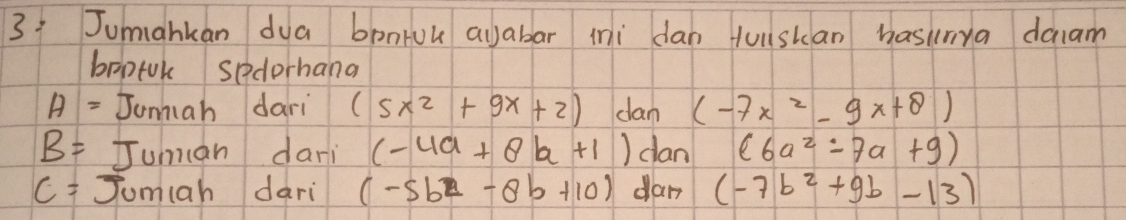 3. Jumlahkan dua bentuk aljabar ini dan tuliskan hasilnya dalam
bentuk sederhana
A = Jumlah dari (5x² + 9x + 2) dan (-7x² - 9x + 8)
B = Jumlah dari (-4a + 8a + 1) dan (6a² - 7a + 9)
C = Jumlah dari (-5b2 - 8b + 10) dan (-7b² + 9b - 13)